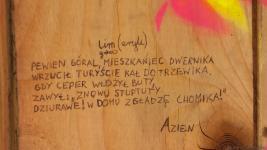 Lim (engl)
PEWIEN GÓRAL, MIESZKANIEC DWERNIKA
WRZUCIŁ TURYŚCIE KAŁ DO TRZEWIKA.
GDY CEPER WŁOŻYŁ BUTY,
ZAWYŁ: „ZNOWU STUPTUTY
DZIURAWE! W DOMU ZGŁADZĘ CHOMIKA!"
AZIEN